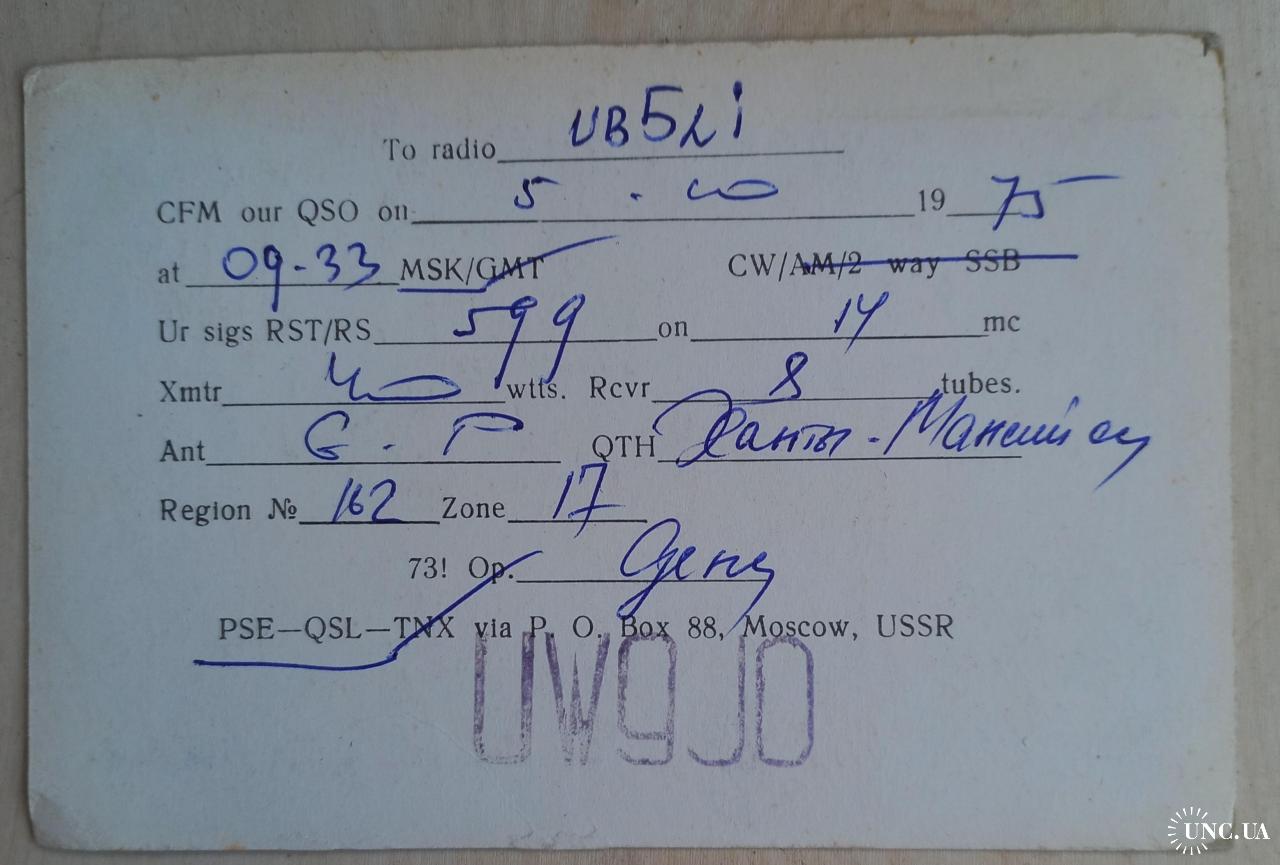 To radio UB5LI
CFM our QSO on 5 . 10 1975
at 09-33 MSK/GMT CW/AM/2 way SSB
Ur sigs RST/RS 599 on 14 mc
Xmtr 40 wtts. Rcvr 8 tubes.
Ant G.P QTH Ханты-Мансийск
Region № 162 Zone 17
73! Op.
PSE—QSL—TNX via P. O. Box 88, Moscow, USSR
UW9JO
UNC.UA